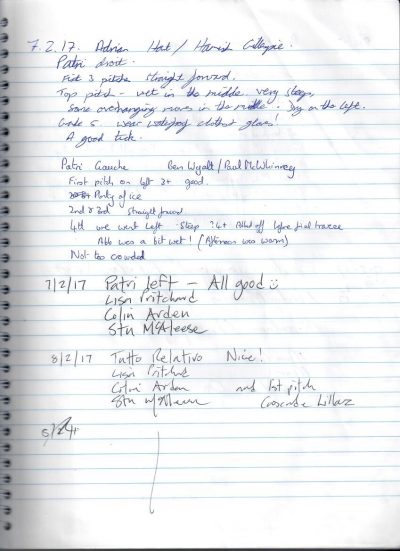 7.2.17. Adrian Hart / Hamish Gillespie.
Patri droit.
First 3 pitches straight forward.
Top pitch - wet in the middle very steep,
Some overhanging moves in the middle. Dry on the left.
Grade 5. wear waterproof clothes + gloves!
A good tick.
Patri Gauche Ben Wyatt / Paul McWhinney
First pitch on left 3+ good.
Plenty of ice
2nd & 3rd straight forward
4th we went left. Steep 4+ Abbed off before final
Abb was a bit wet! (Afternoon was warm)
Not too crowded
7/2/17 Patri left - All good
Lisa Pritchard
Colin Arden
Stu McAleese
8/2/17 Tutto Relativo Nice!
Lisa Pritchard
Colin Arden and 1st pitch
Stu McAleese Cascade Lillaz